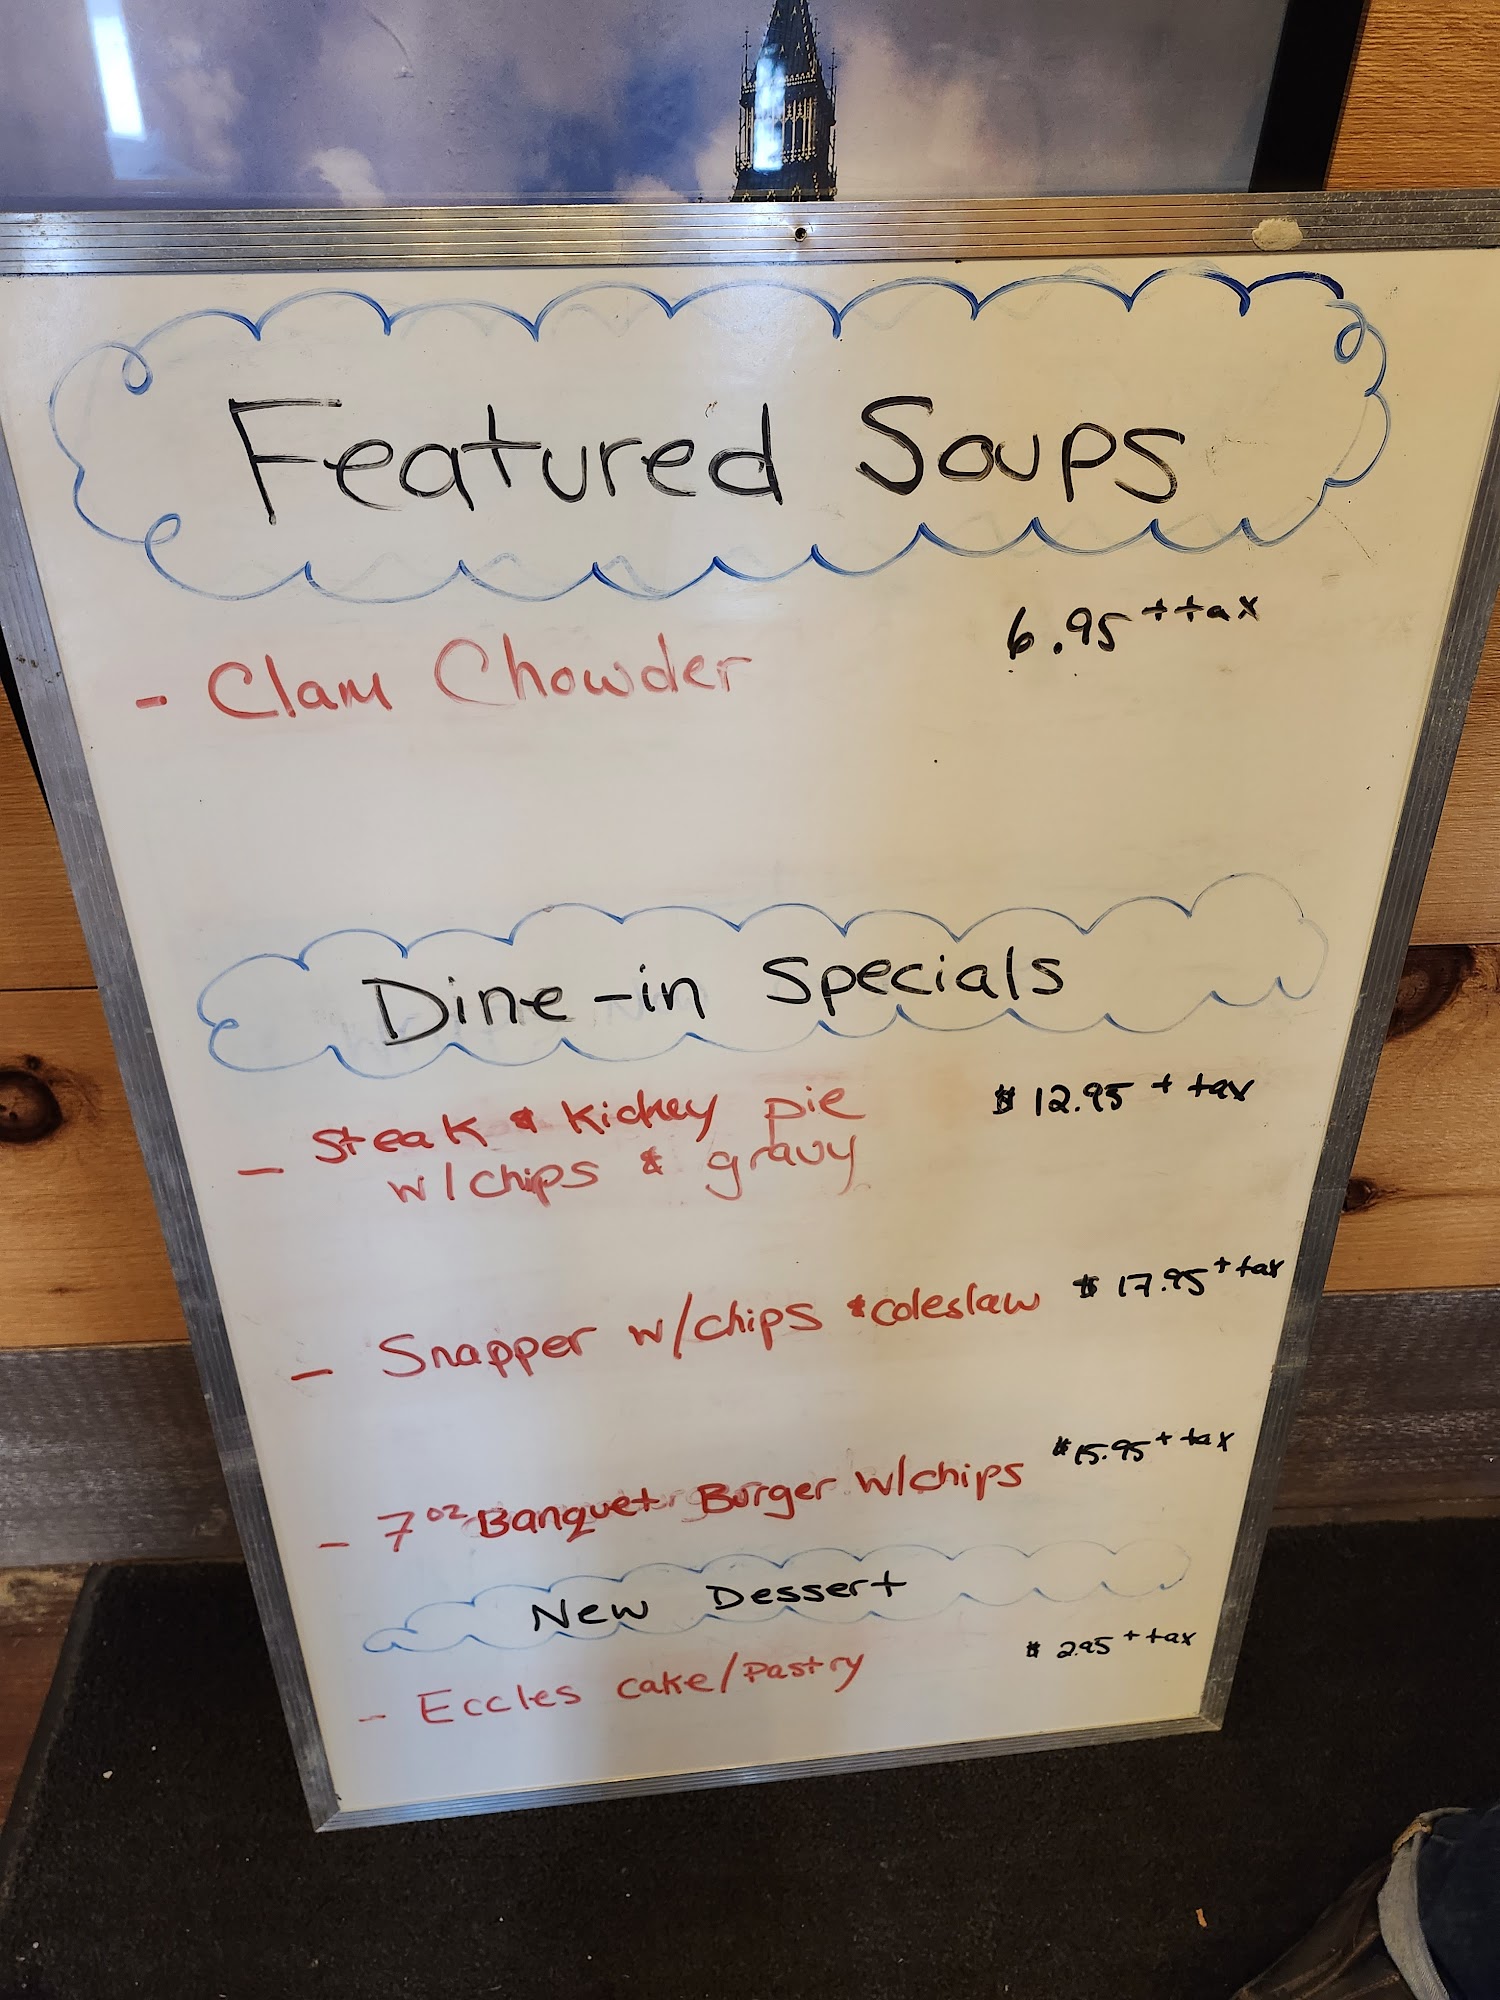 Featured Soups
- Clam Chowder 6.95 + tax
Dine-in Specials
- Steak & Kidney pie $12.95 + tax
w/chips & gravy
- Snapper w/chips & coleslaw $17.95 + tax
- 7oz Banquet Burger w/chips $15.95 + tax
New Dessert
- Eccles cake/Pastry $2.95 + tax